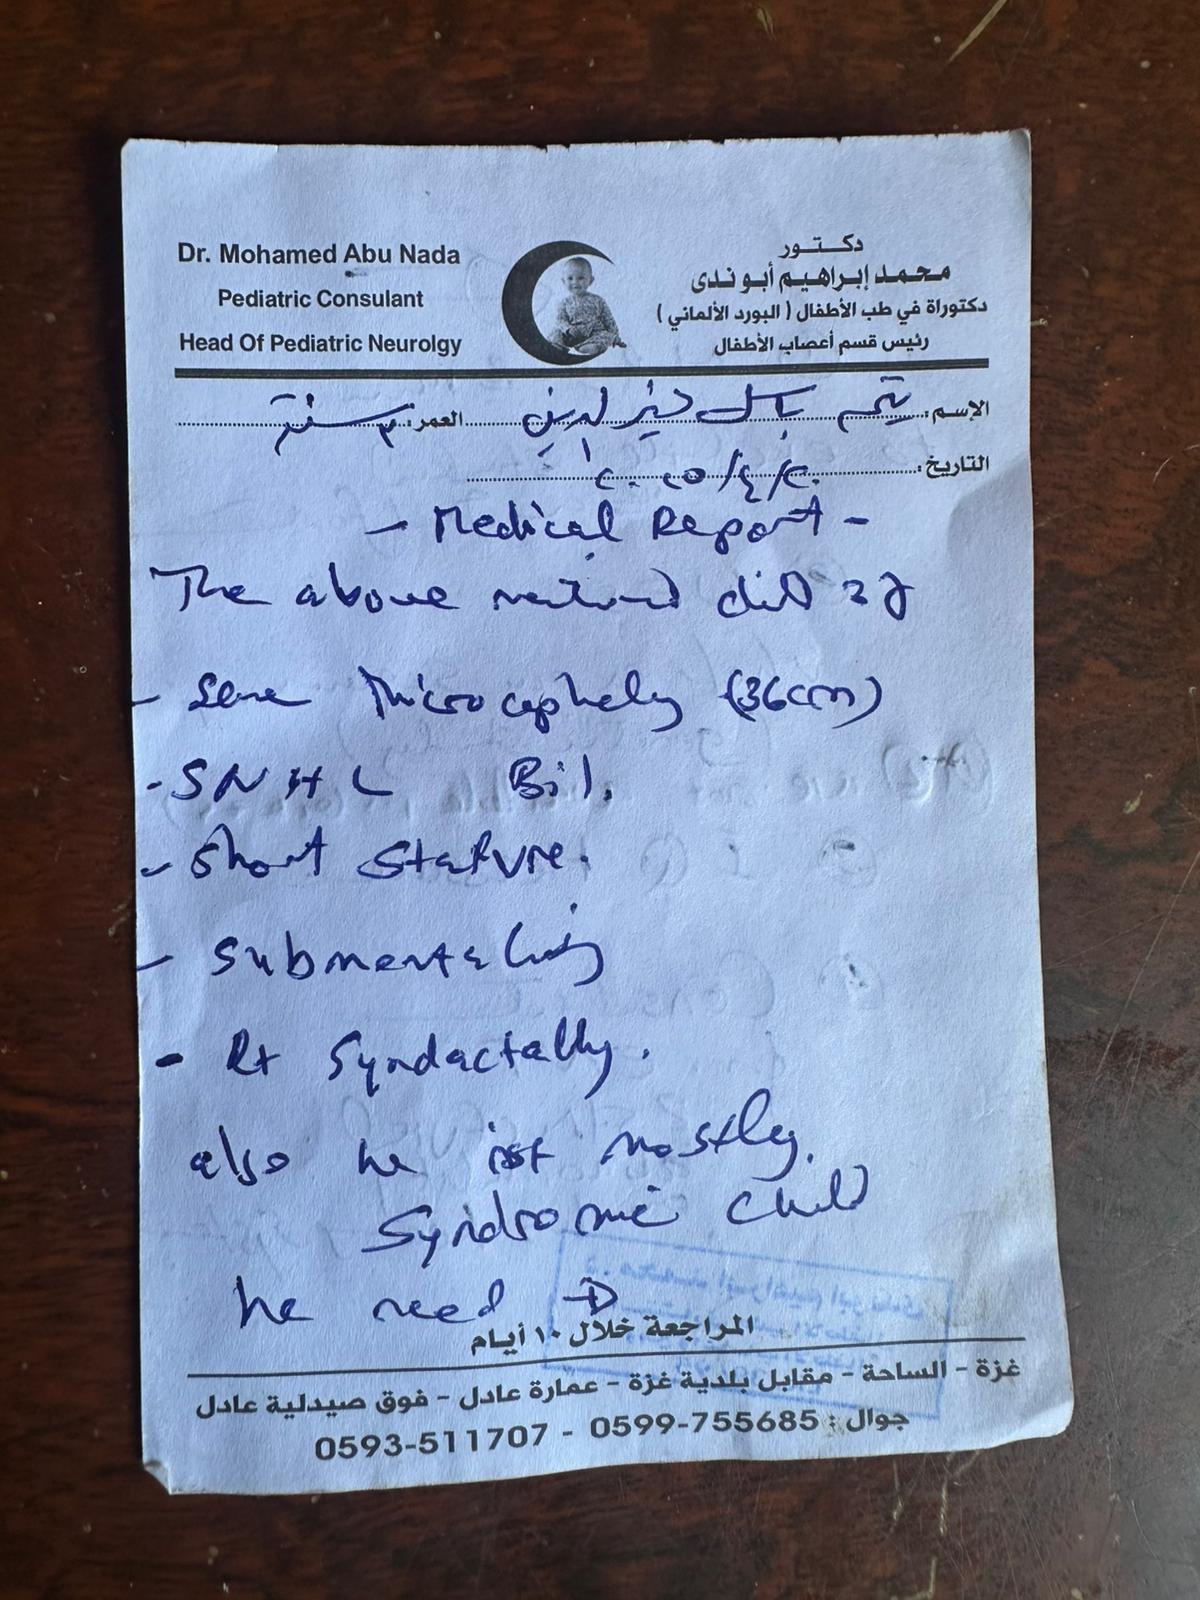 Dr. Mohamed Abu Nada
Pediatric Consulant
Head Of Pediatric Neurolgy
دكـتـور
محمد إبراهيم أبو ندى
دكتوراة في طب الأطفال ( البورد الألماني )
رئيس قسم أعصاب الأطفال
الإسم: باسل العمر: سنة
التاريخ:
- Medical Report -
The above child
- Microcephely (36cm)
- SNHL Bil.
- Short Stature.
- Submentality
- Rt Syndactally.
also he is mostly
Syndromic child
he need →
المراجعة خلال ١٠ أيام
غزة - الساحة - مقابل بلدية غزة - عمارة عادل - فوق صيدلية عادل
جوال : 0599-755685 - 0593-511707